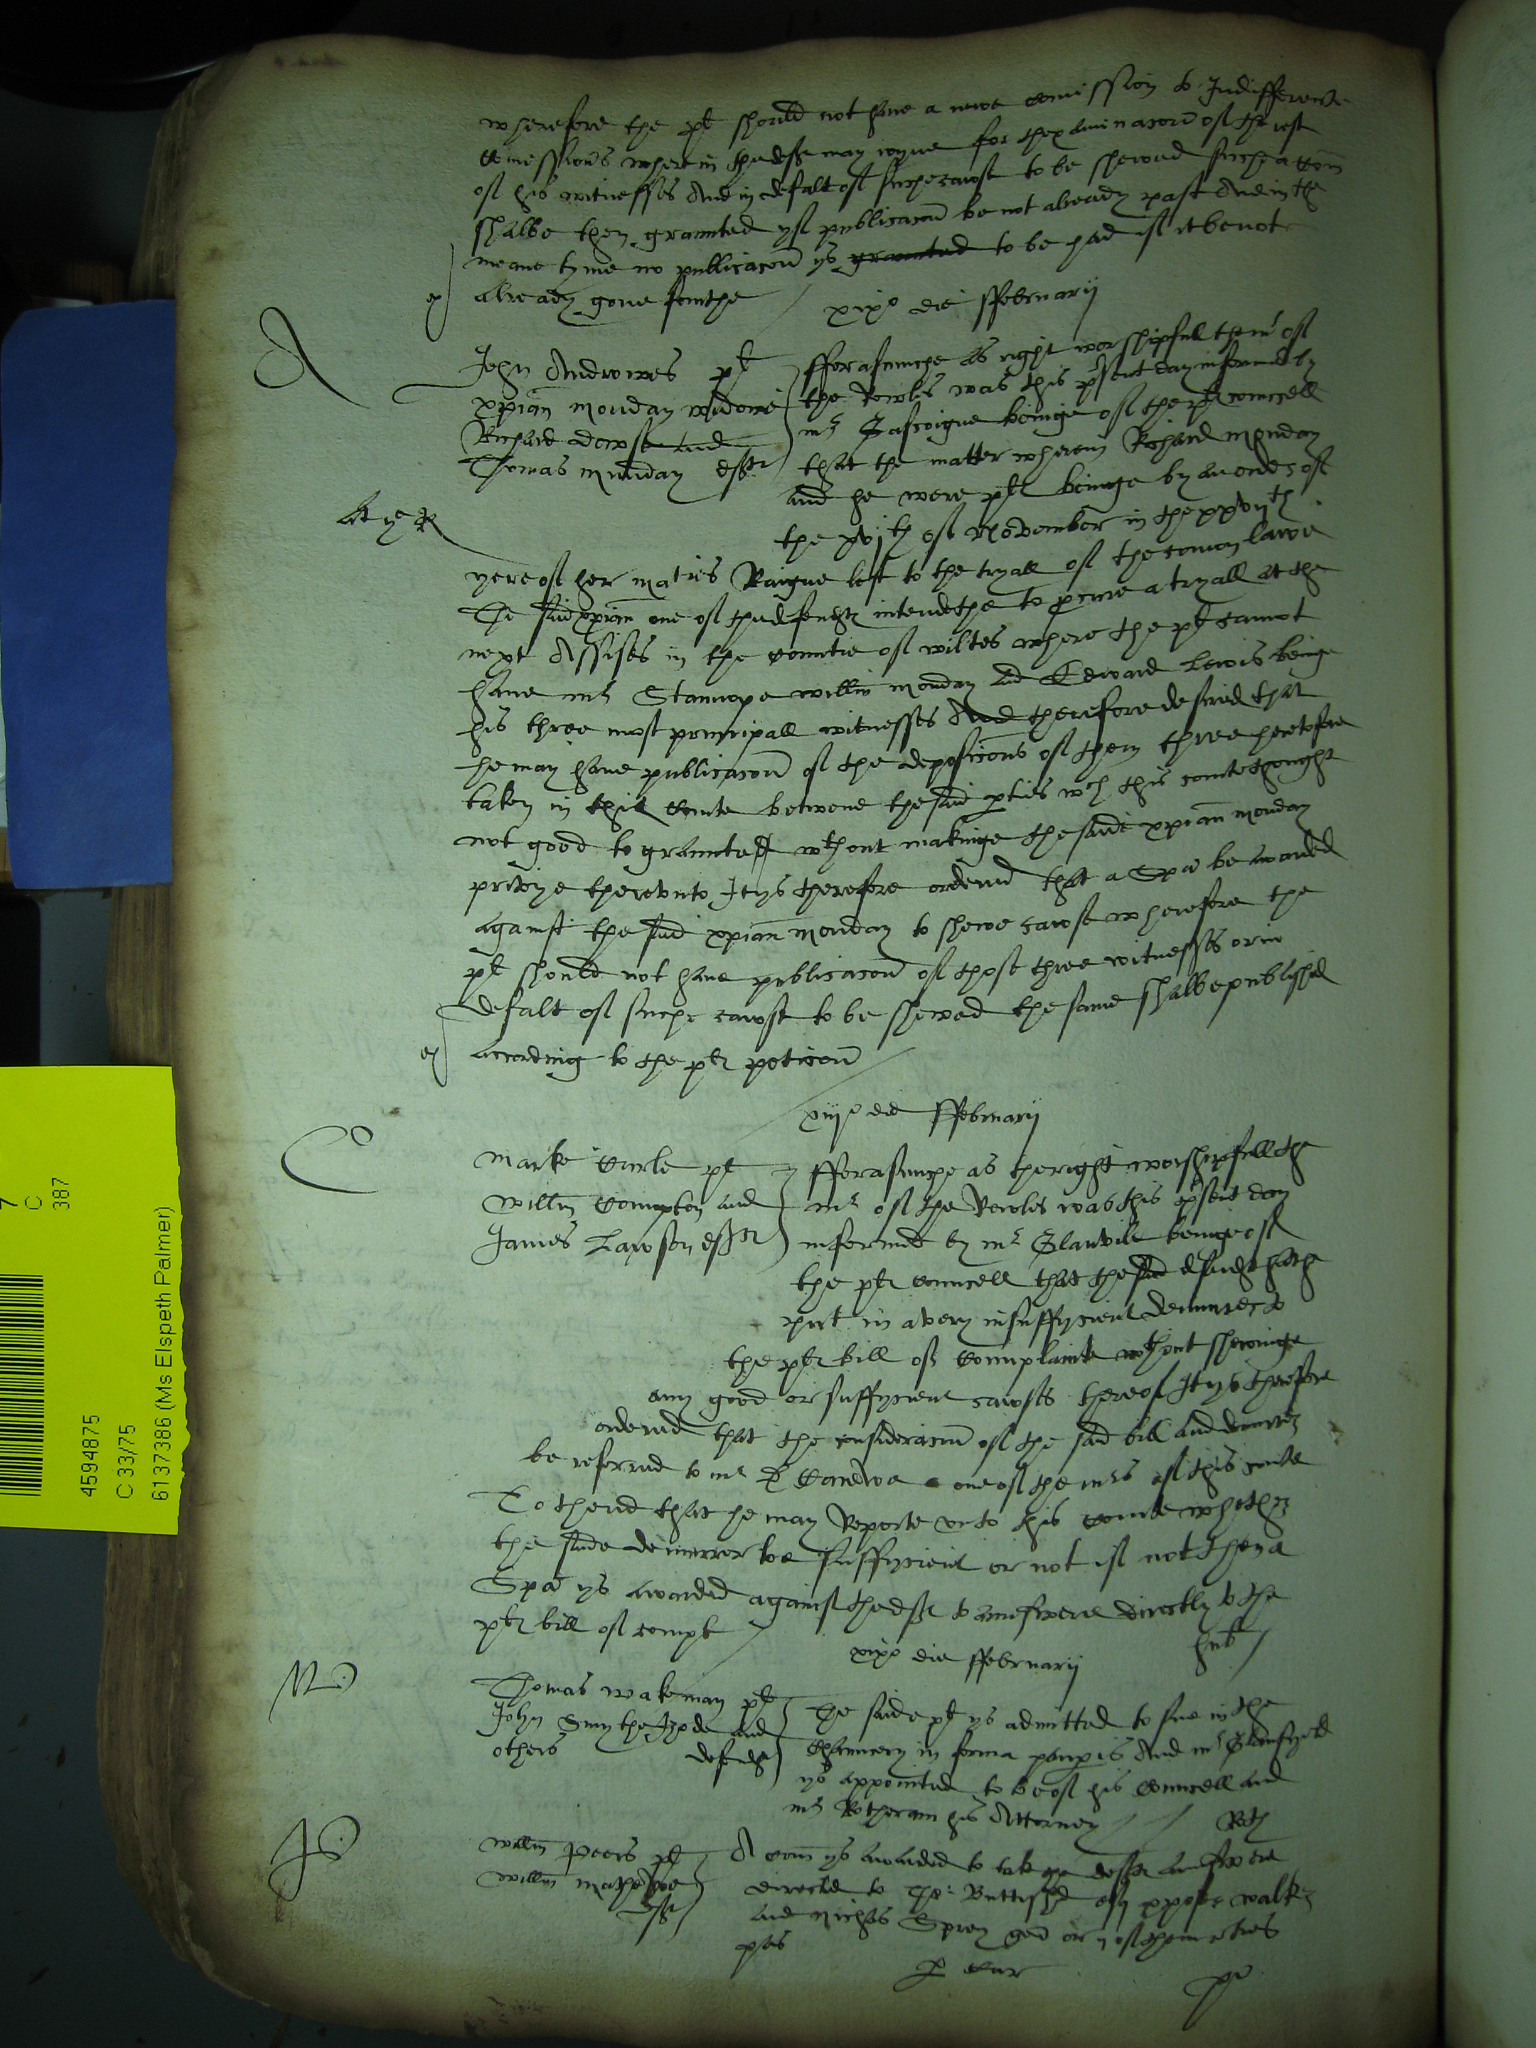 wherefore the pl should not have a newe comission to Indifferent
comissioners wherein the def may ioyne for thexaminacon of the rest
of his witnesses And in defalt of suche cawse to be shewed suche a com
shalbe then graunted yf publicacon be not already past And in the
meane tyme no publicacon ys graunted to be had if it be not
already gone fourthe
xixo die ffebruarij
A
John Androwes pl
xpian Monday widowe
Richard dowse and
Thomas Munday def
fforasmuche as right worshipfull the mr of
the Rowles was this present day informed by
mr Gascoigne beinge of the pl councell
that the matter wherein Richard Monday
and he were pl beinge by an order of
the xvjth of November in the xxvijth
yere of her maties Raigne left to the tryall of the comon lawe
The said xpian one of the defend intendethe to procure a tryall at the
next Assises in the countie of wiltes where the pl cannot
have mr Stanhope willm Monday and Edward Lewis beinge
his three most principall witnesses And therefore desired that
he may have publicacon of the deposicons of them three heretofore
taken in this courte betwene the said parties wch this courte thought
not good to graunte wthout makinge the saide xpian Monday
privye therevnto It ys therefore ordered that a Spa be awarded
against the said xpian Monday to shewe cawse wherefore the
pl should not have publicacon of those three witnesses or in
defalt of suche cawse to be shewed the same shalbe published
according to the pl peticon
xiijo die ffebruarij
C
Marke Curle pl
Willm Compton and
James Lawson def
fforasmuche as the right worshipfull the
mr of the Rowles was this present day
informed by mr Glanvile beinge of
the pl councell that the said defend hathe
put in a very insuffycient demurrer to
the pl bill of Complainte wthout shewinge
any good or suffycient cawses thereof It ys therefore
ordered that the consideracon of the said bill and demurrer
be referred to mr D Carewe one of the mrs of this courte
To thend that he may Reporte vnto this courte whether
the saide demurrer be suffycient or not if not then a
Spa ys awarded against the def to aunswere directly to the
pl bill of compt
hub
xixo die ffebruarij
Thomas wakeman pl
John Smythe and
others defend
The saide pl ys admitted to sue in the
Chauncery in forma pauperis And mr
ys appointed to be of his councell and
mr Rotheram his Attorney
Roth
willm Peers pl
willm Mathewe
def
A com ys awarded to take the def aunswere
directed to Tho: ar xpofer walker
and Nichas Sprey gen or of them
p Cur